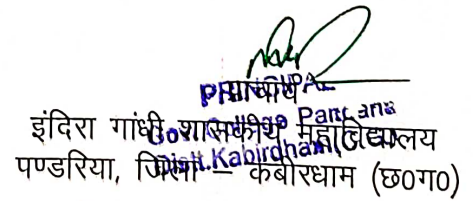 प्राचार्य
PRINCIPAL
इंदिरा गांधी शासकीय महाविद्यालय
Govt. College Pandaria
पण्डरिया, जिला – कबीरधाम (छ0ग0)
Distt. Kabirdham (C.G.)